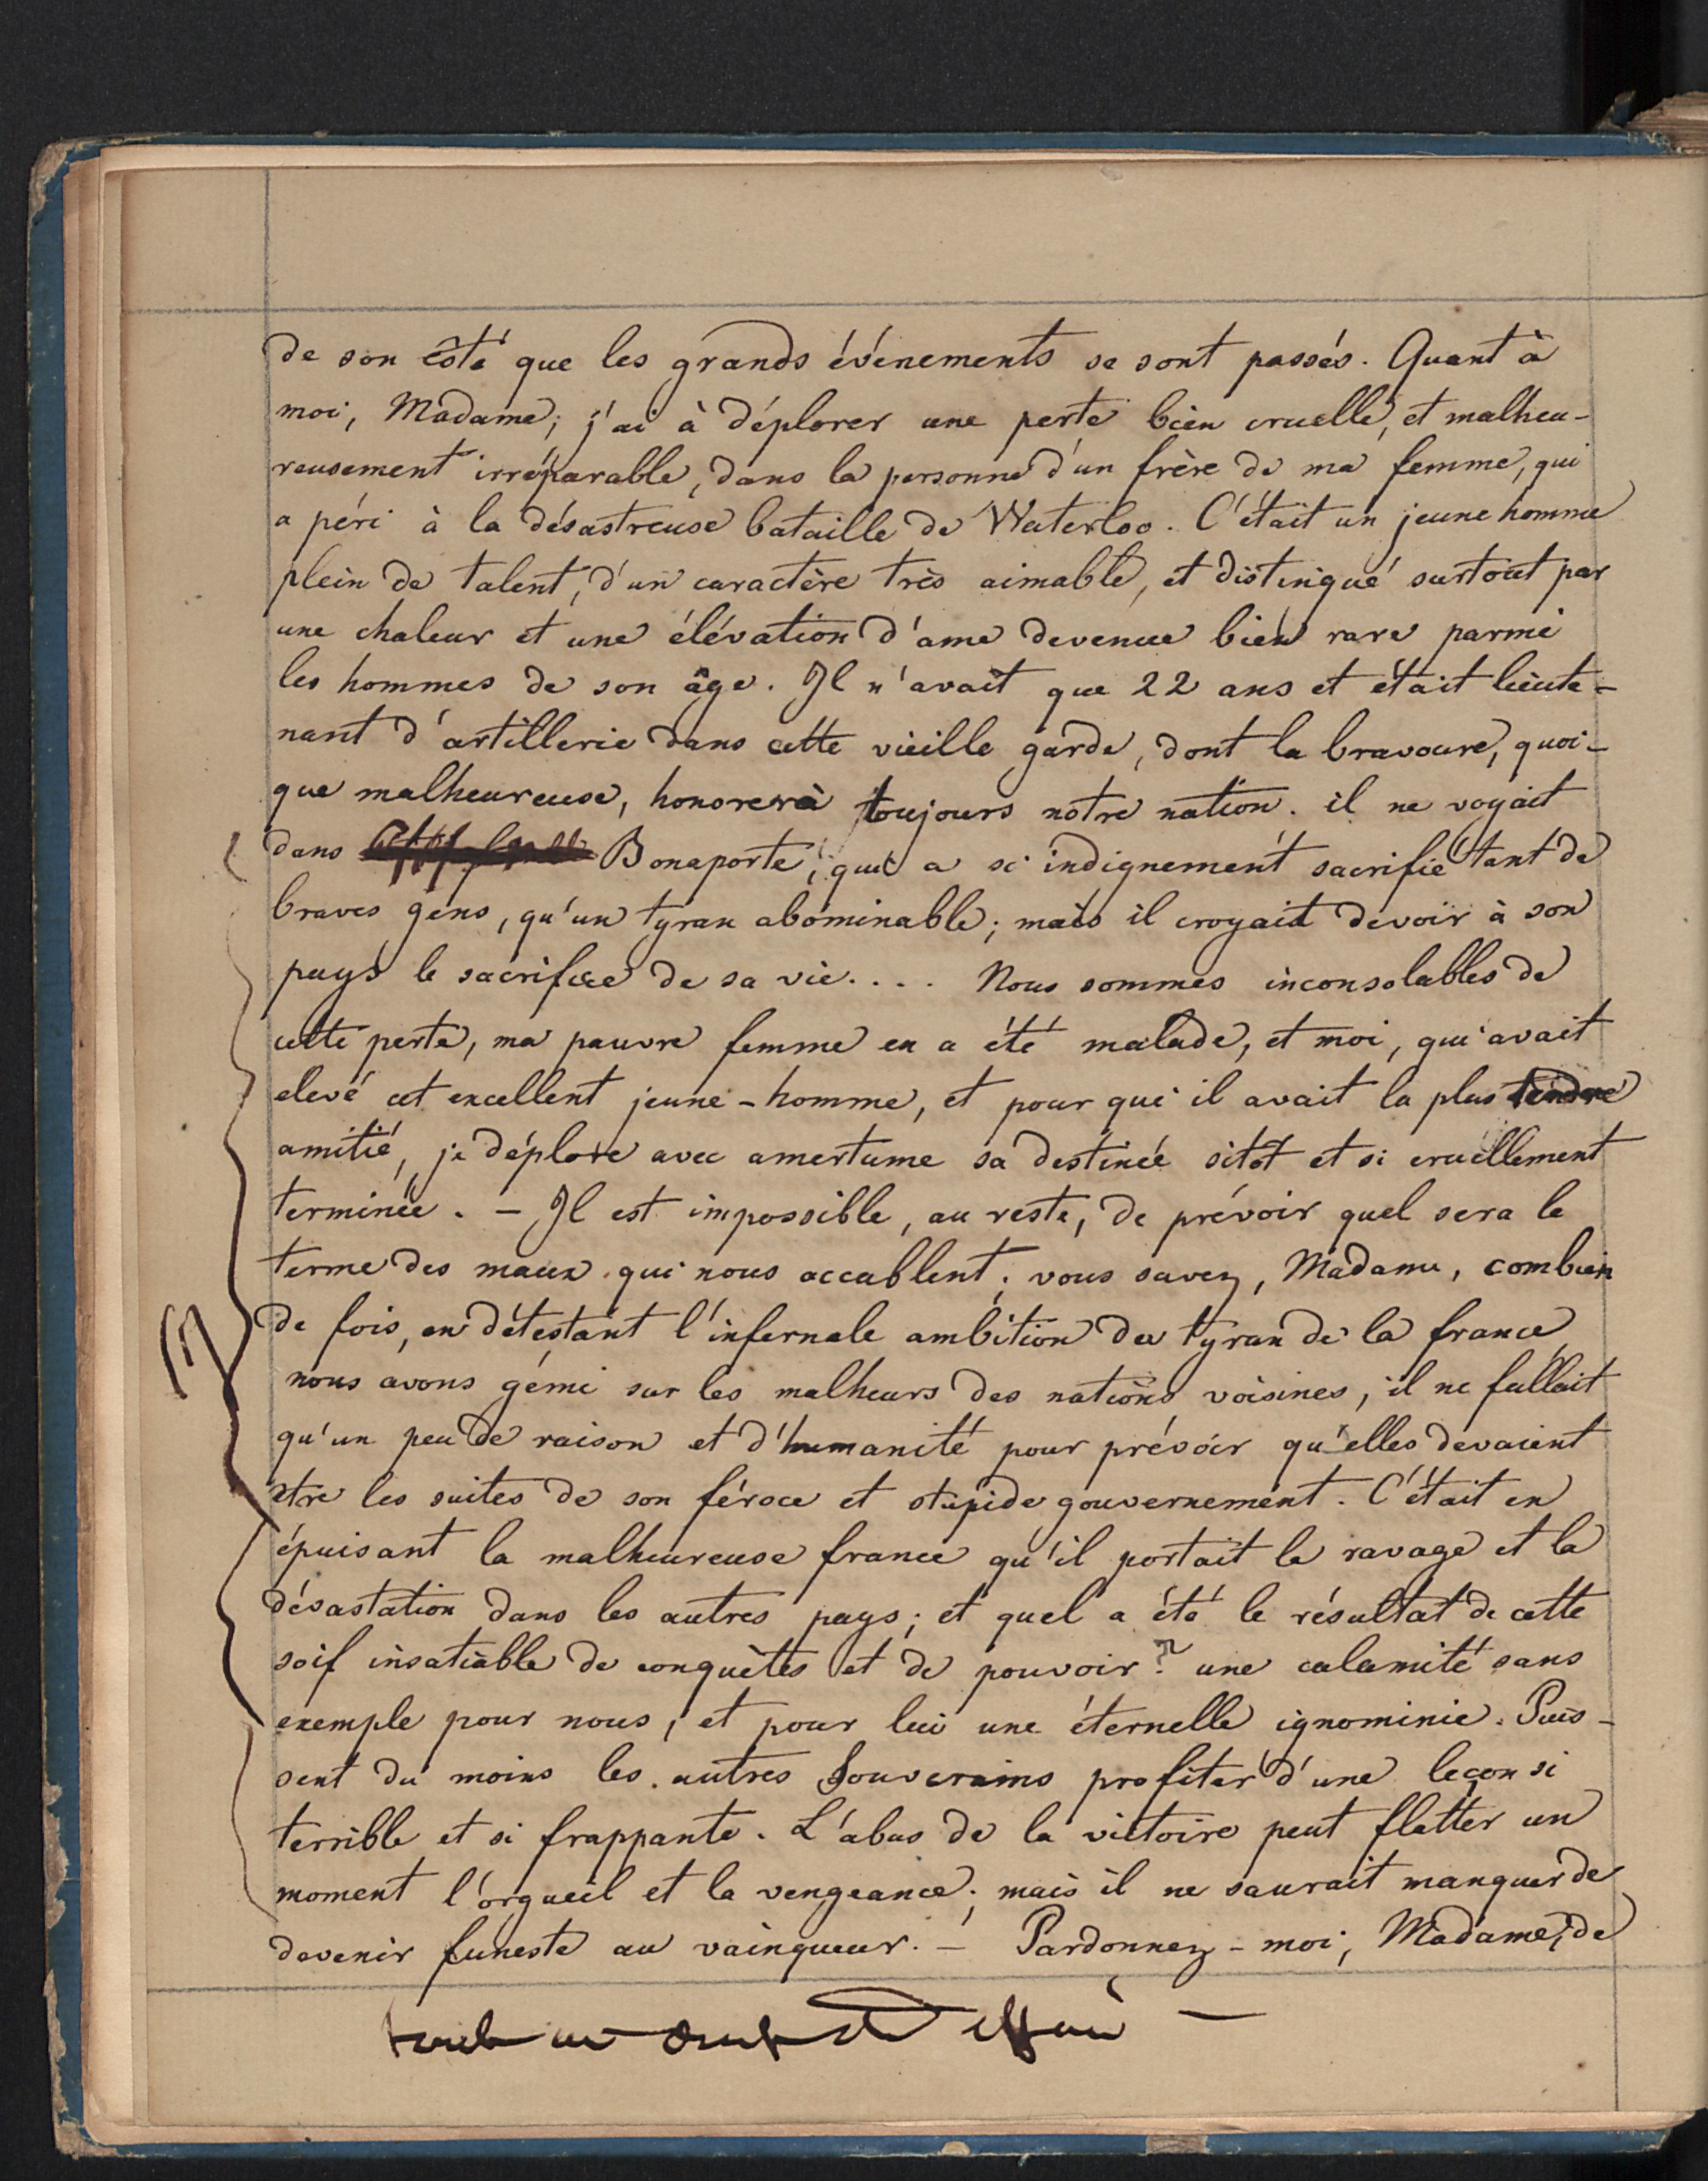 de son côté que les grands événements se sont passés. Quant à
moi, Madame, j'ai à déplorer une perte bien cruelle, et malheu-
reusement irréparable, dans la personne d'un frère de ma femme, qui
a péri à la désastreuse bataille de Waterloo. C'était un jeune homme
plein de talent, d'un caractère très aimable, et distingué surtout par
une chaleur et une élévation d'ame devenue bien rare parmi
les hommes de son âge. Il n'avait que 22 ans et était lieute-
nant d'artillerie dans cette vieille garde, dont la bravoure, quoi-
que malheureuse, honorera toujours notre nation. il ne voyait
dans Bonaparte, qui a si indignement sacrifié tant de
braves gens, qu'un tyran abominable; mais il croyait devoir à son
pays le sacrifice de sa vie.... Nous sommes inconsolables de
cette perte, ma pauvre femme en a été malade, et moi, qui avait
elevé cet excellent jeune-homme, et pour qui il avait la plus tendre
amitié, je déplore avec amertume sa destinée sitôt et si cruellement
terminée. - Il est impossible, au reste, de prévoir quel sera le
terme des maux qui nous accablent; vous savez, Madame, combien
de fois, en détestant l'infernale ambition du tyran de la france,
nous avons gémi sur les malheurs des nations voisines, il ne fallait
qu'un peu de raison et d'humanité pour prévoir qu'elles devaient
etre les suites de son féroce et stupide gouvernement. C'était en
épuisant la malheureuse france qu'il portait le ravage et la
dévastation dans les autres pays; et quel a été le résultat de cette
soif insatiable de conquètes et de pouvoir? une calamité sans
exemple pour nous, et pour lui une éternelle ignominie. Puis-
sent du moins les autres Souverains profiter d'une leçon si
terrible et si frappante. L'abus de la victoire peut flatter un
moment l'orgueil et la vengeance; mais il ne saurait manquer de
devenir funeste au vainqueur. - Pardonnez-moi, Madame, de